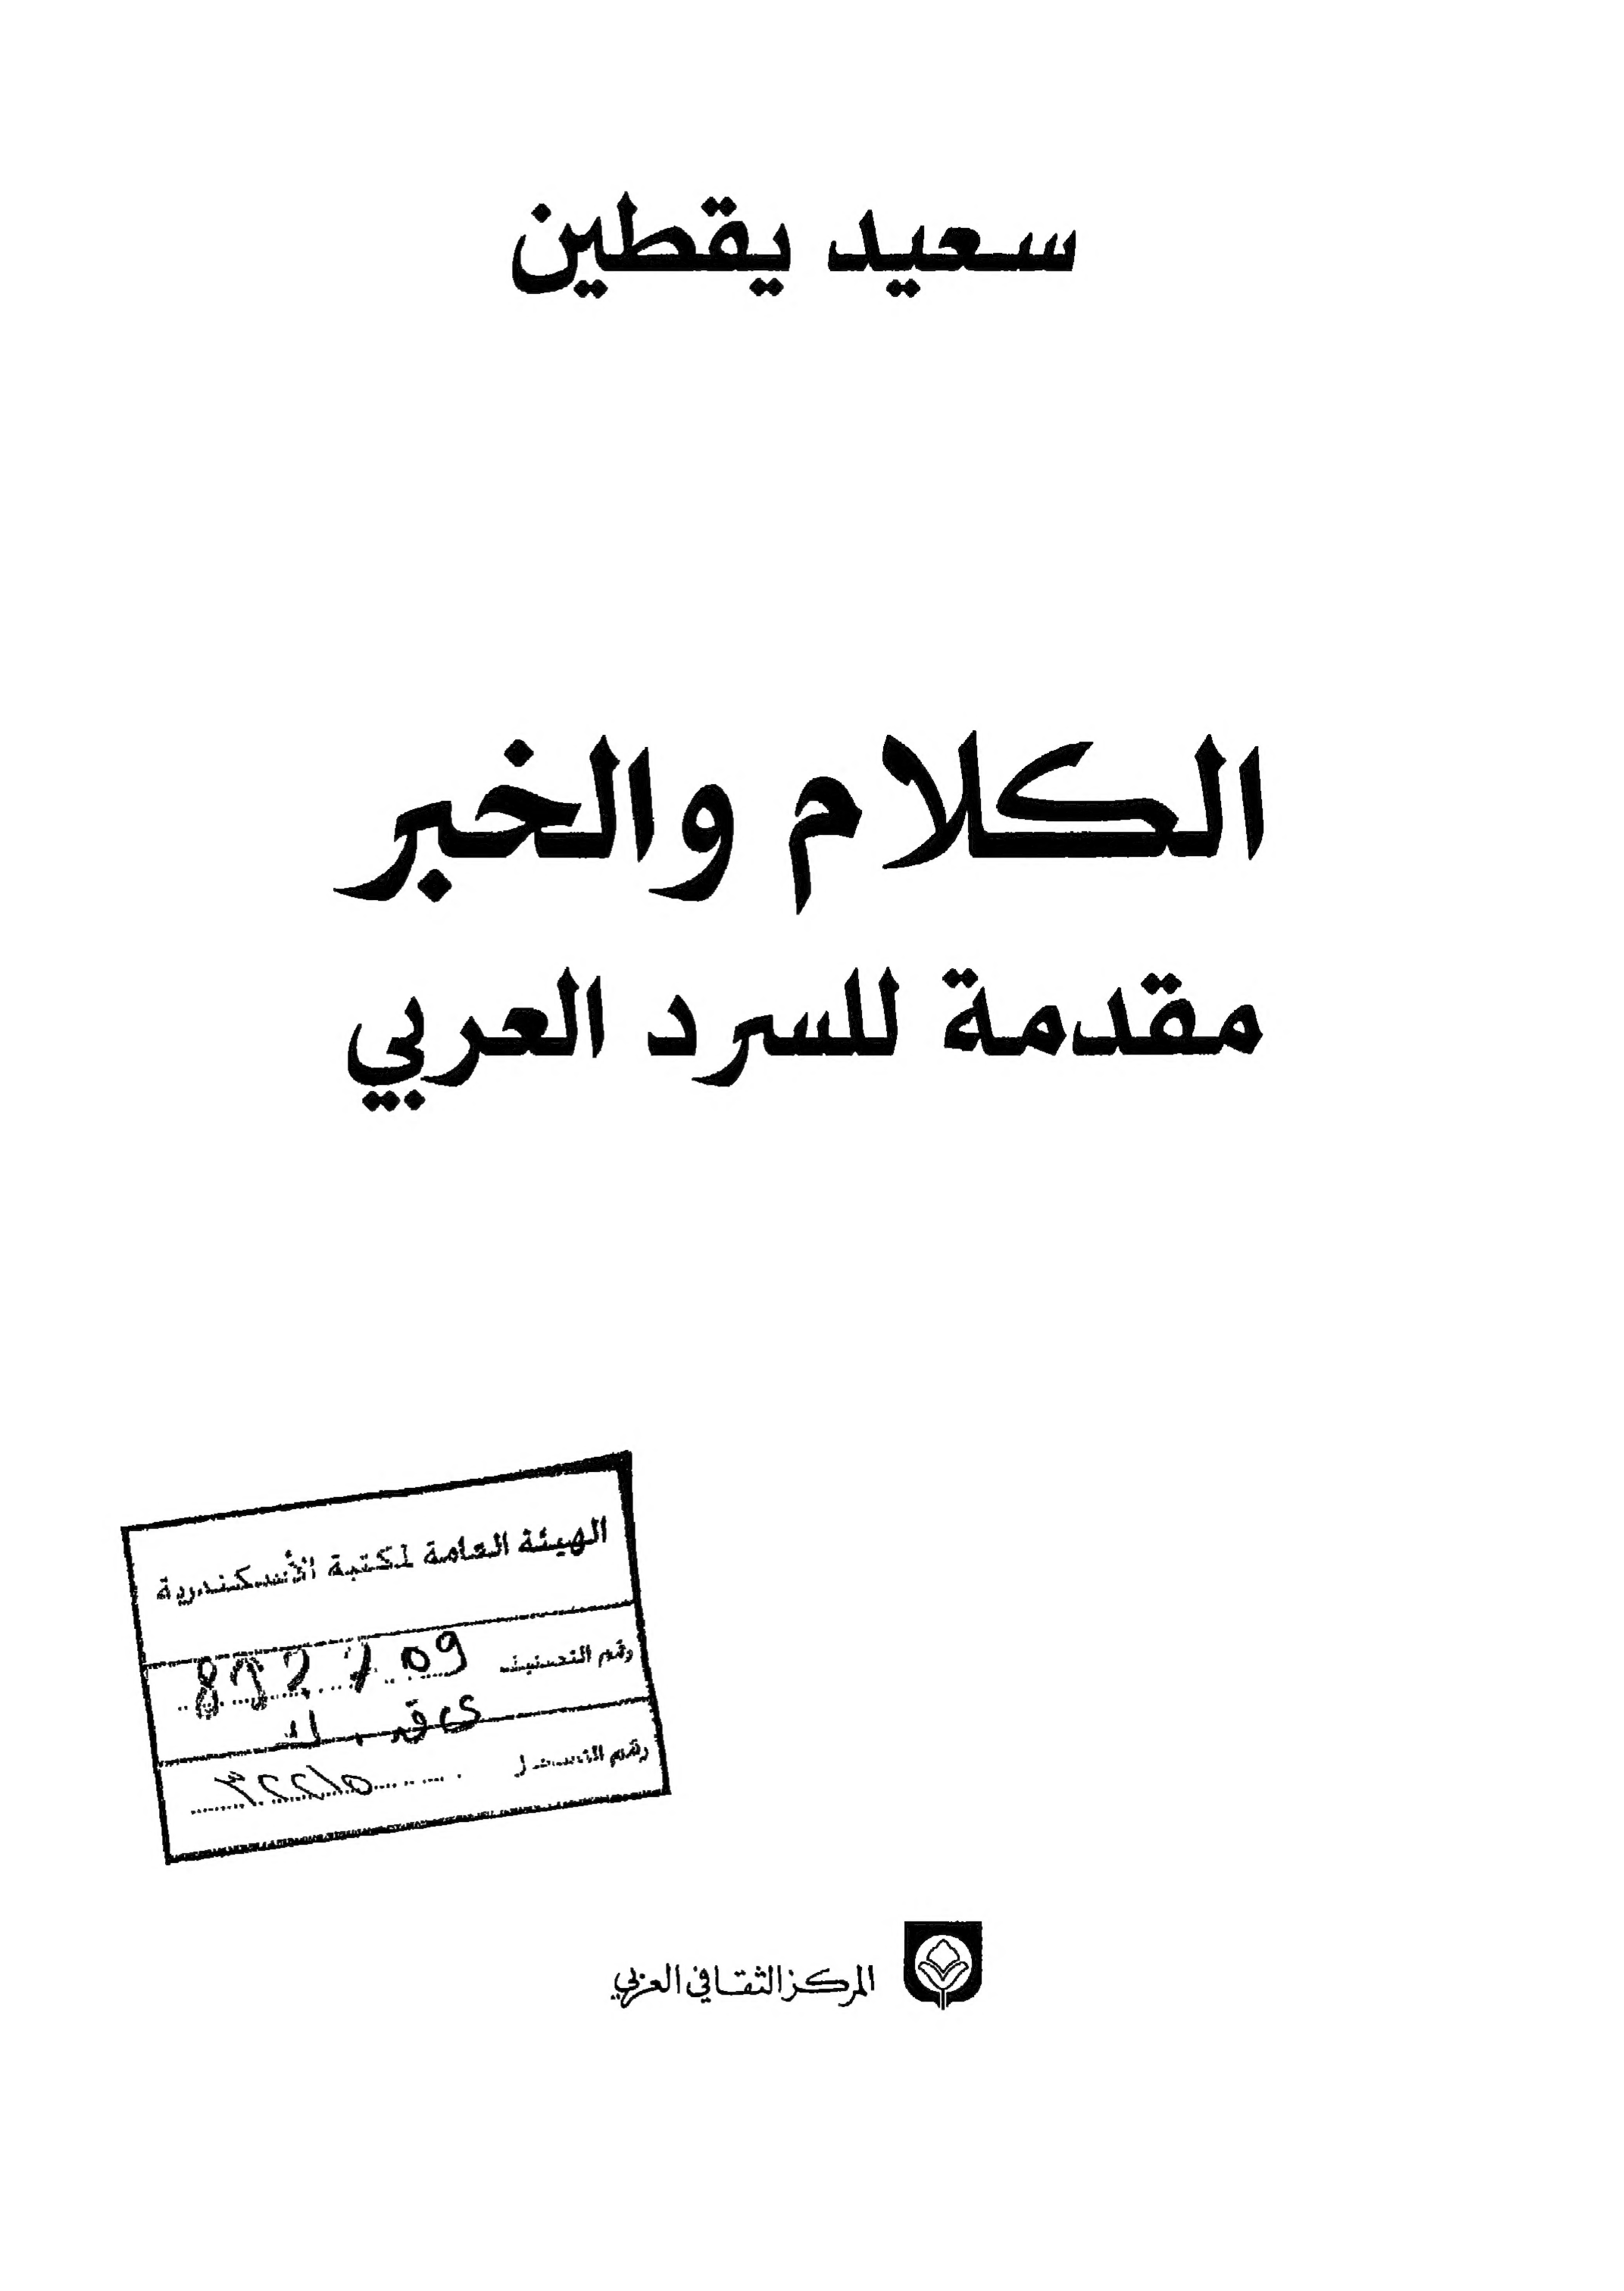 سعيد يقطين
الكلام والخبر
مقدمة للسرد العربي
الهيئة العامة لمكتبة الأسكندرية
رقم التصنيف
ى ق . ك
رقم التسجيل
المركز الثقافي العربي